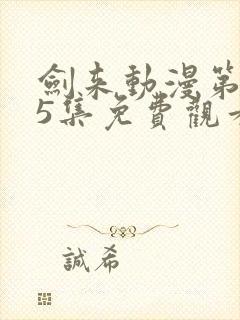 劍来動漫第
5集免費觀
誠希